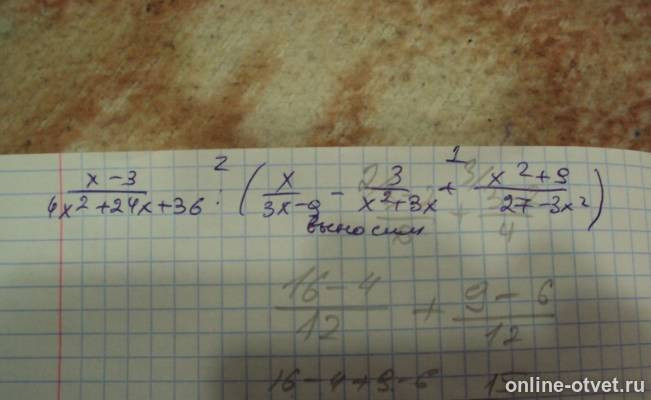 2 1
x-3 / 4x²+24x+36 : ( x / 3x-9 - 3 / x²+3x + x²+9 / 27-3x² )
выносим
4
16-4 / 12 + 9-6 / 12
16-4+9-6 15
online-otvet.ru